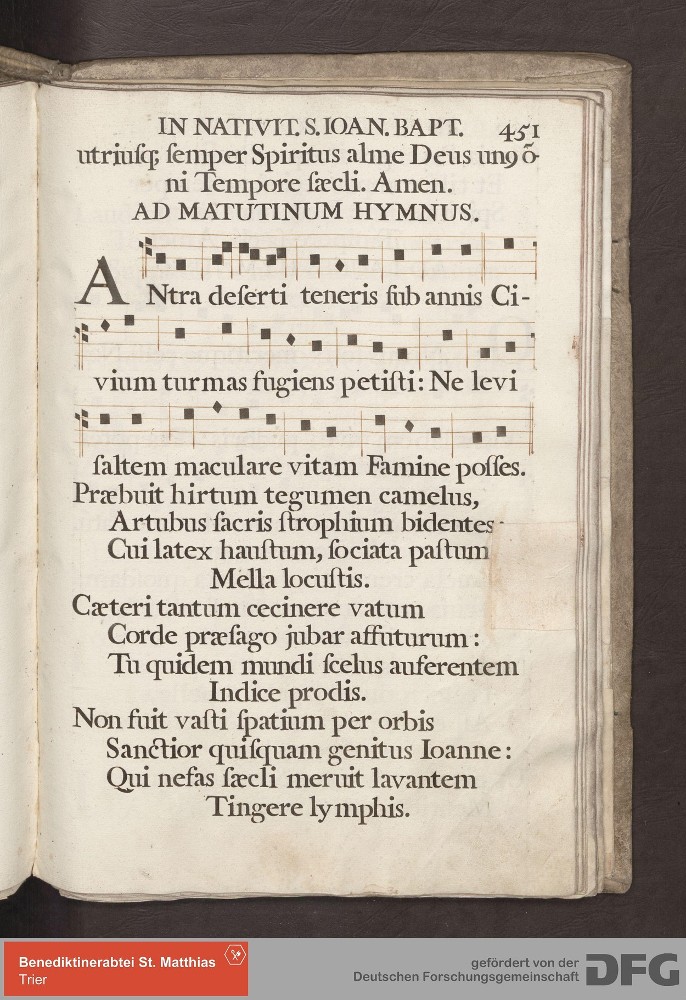 IN NATIVIT. S. IOAN. BAPT. 451
utriuſq; ſemper Spiritus alme Deus unꝯ õ-
ni Tempore ſæcli. Amen.
AD MATUTINUM HYMNUS.
ANtra deſerti teneris ſub annis Ci-
vium turmas fugiens petiſti: Ne levi
ſaltem maculare vitam Famine poſſes.
Præbuit hirtum tegumen camelus,
Artubus ſacris ſtrophium bidentes
Cui latex hauſtum, ſociata paſtum
Mella locuſtis.
Cæteri tantum cecinere vatum
Corde præſago jubar affuturum:
Tu quidem mundi ſcelus auferentem
Indice prodis.
Non fuit vaſti ſpatium per orbis
Sanctior quiſquam genitus Ioanne:
Qui nefas ſæcli meruit lavantem
Tingere lymphis.
Benediktinerabtei St. Matthias
Trier
gefördert von der
Deutschen Forschungsgemeinschaft
DFG